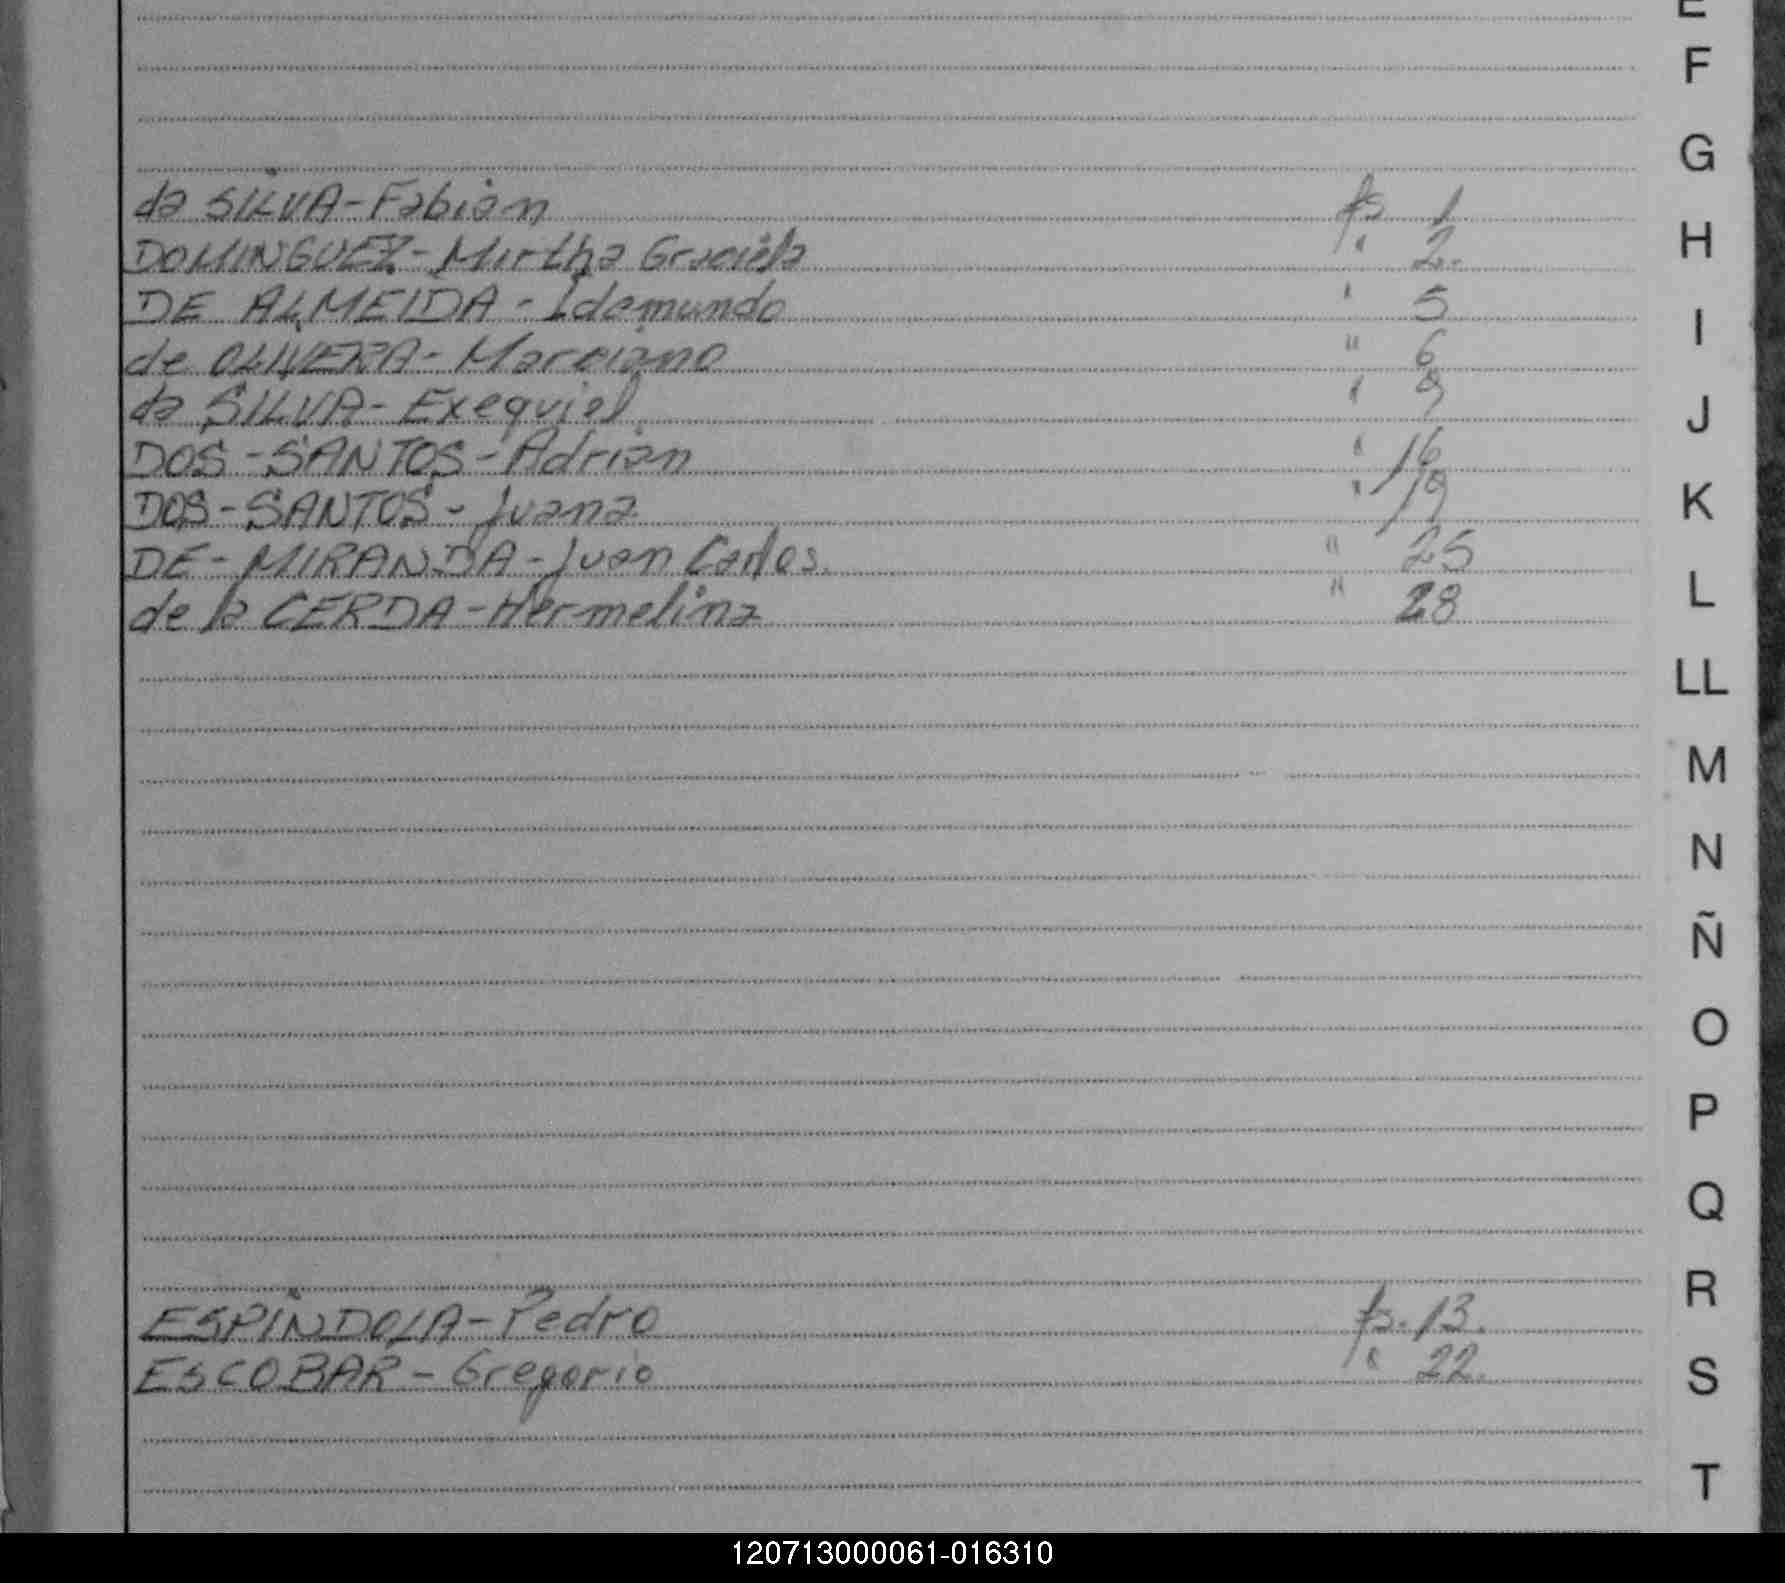 E
F
G
H
I
J
K
L
LL
M
N
Ñ
O
P
Q
R
S
T
da SILVA-Fabian fs. 1
DOMINGUEZ-Mirtha Graciela " 2.
DE ALMEIDA-Idemundo " 5
de OLIVERA-Marciano " 6
da SILVA-Exequiel " 9
DOS-SANTOS-Adrian " 16
DOS-SANTOS-Juana " 19
DE-MIRANDA-Juan Carlos. " 25
de la CERDA-Hermelina " 28
ESPINDOLA-Pedro fs. 13.
ESCOBAR-Gregorio " 22.
120713000061-016310